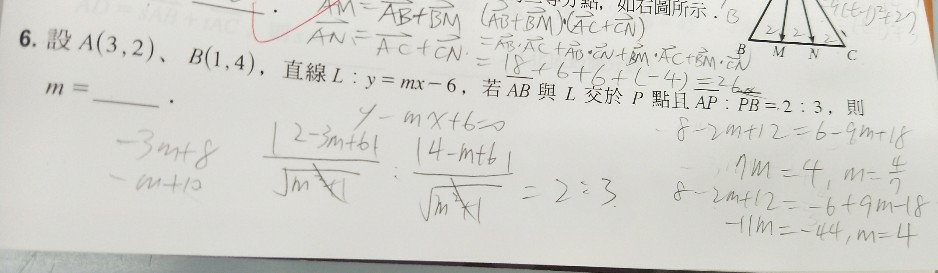 AM = AB+BM (AB+BM)·(AC+CN)
AN = AC+CN. = AB·AC+AB·CN+BM·AC+BM·CN
= 18+6+6+(-4)=26
點,如右圖所示.
B M N C
2 2 2
6. 設 A(3,2)、B(1,4),直線 L:y=mx-6,若 AB 與 L 交於 P 點且 AP:PB=2:3,則
m=____.
y-mx+6=0
-3m+8
-m+10
|2-3m+6| / √m²+1 : |4-m+6| / √m²+1 = 2:3
8-2m+12=6-9m+18
7m=4, m=4/7
8-2m+12=-6+9m-18
-11m=-44, m=4